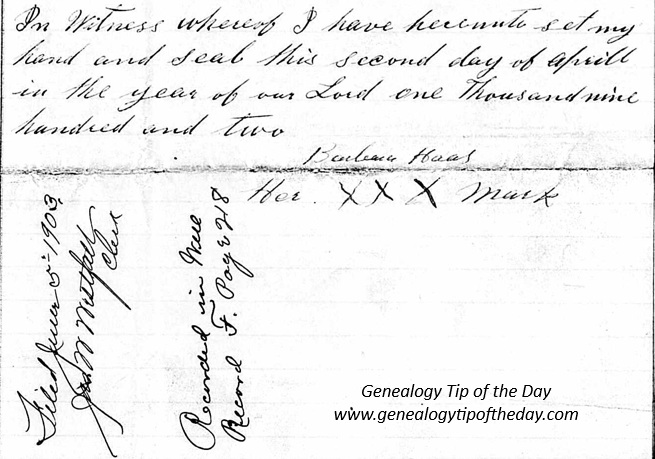 In Witness whereof I have hereunto set my
hand and seal this second day of Aprill
in the year of our Lord one Thousand nine
hundred and two
Barbara Haas
Her. X X X Mark
Filed June 5-1903
Jas W Westfall
Clerk
Recorded in Will
Record F. Page 218
Genealogy Tip of the Day
www.genealogytipoftheday.com